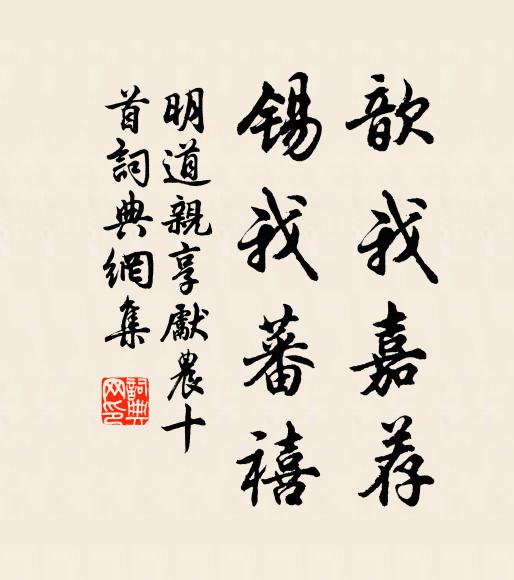 歆我嘉荐
錫我蕃禧
明道親享獻農十
首詞典網集
詞典网印